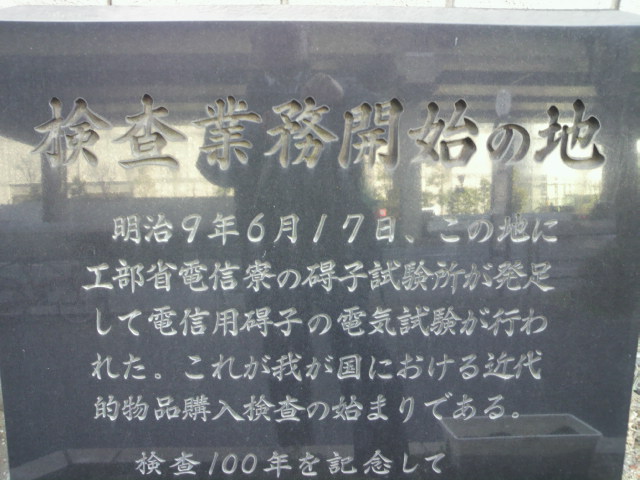 検査業務開始の地
明治9年6月17日、この地に
工部省電信寮の碍子試験所が発足
して電信用碍子の電気試験が行わ
れた。これが我が国における近代
的物品購入検査の始まりである。
検査100年を記念して